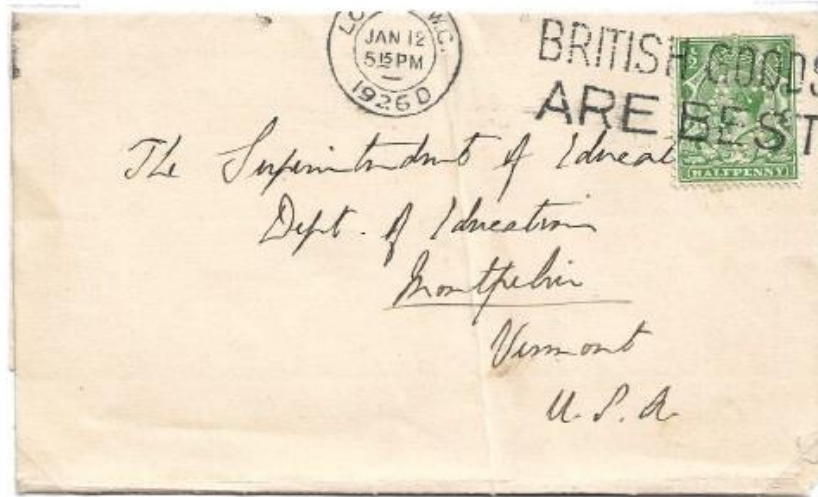 LONDON. W.C.
JAN 12
5 15 PM
1926 D
BRITISH GOODS
ARE BEST
HALFPENNY
The Superintendent of Educat
Dept. of Education
Montpelier
Vermont
U.S.A.